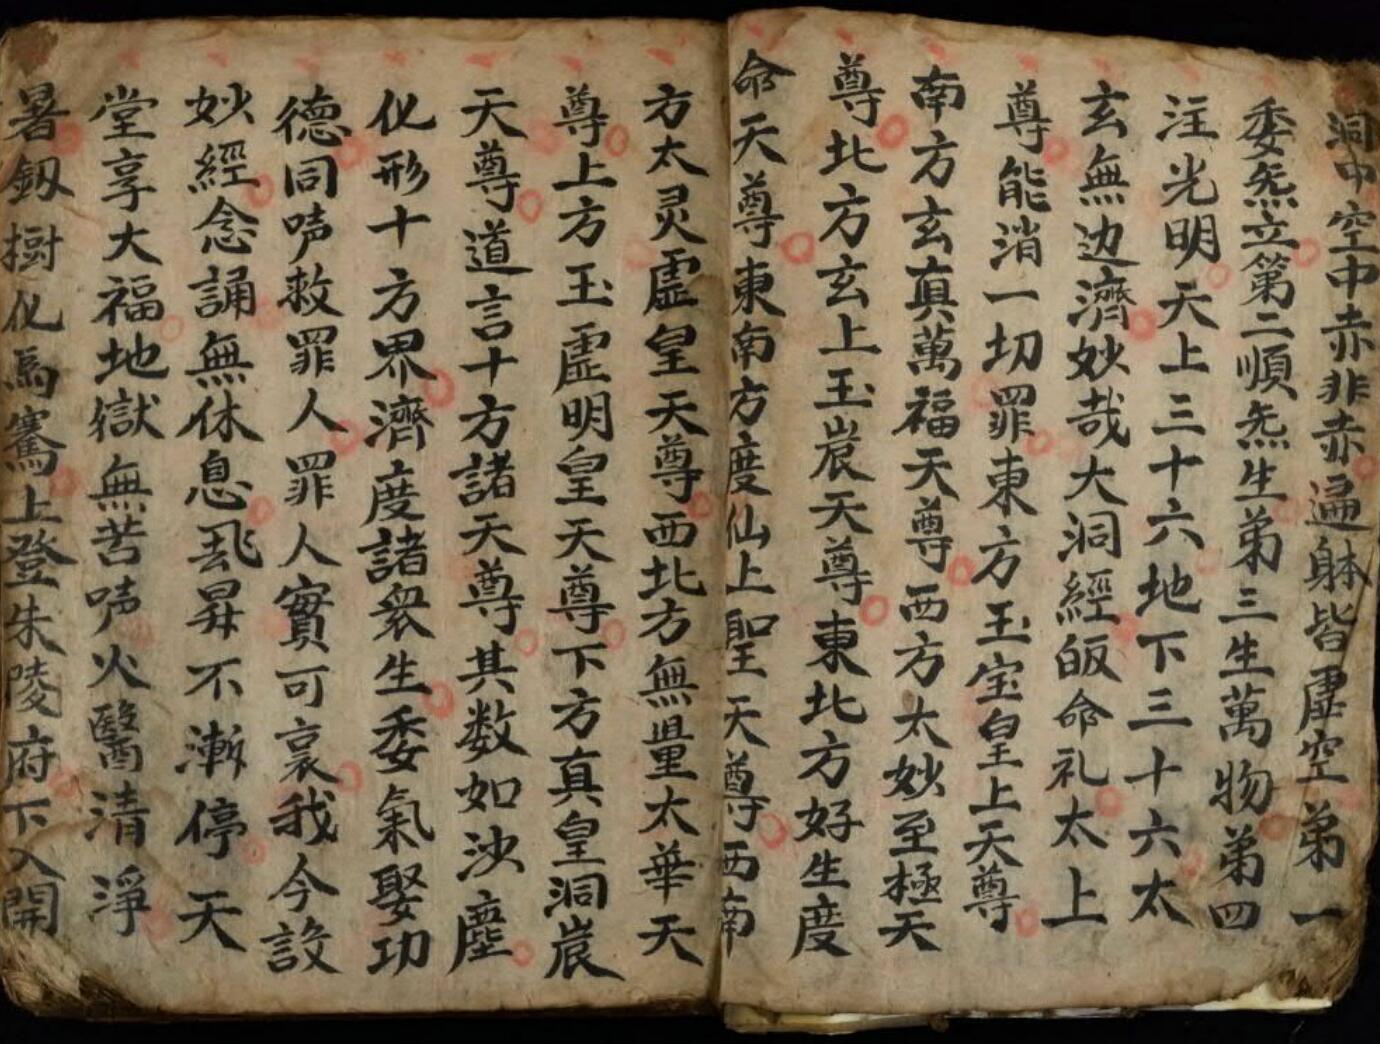 洞中空中赤非赤遍躰皆虛空弟一
委炁立第二順炁生弟三生萬物弟四
注光明天上三十六地下三十六太
玄無边濟妙哉大洞經皈命礼太上
尊能消一切罪東方玉宝皇上天尊
南方玄真萬福天尊西方太妙至極天
尊北方玄上玉宸天尊東北方好生度
命天尊東南方度仙上聖天尊西南
方太灵虛皇天尊西北方無量太華天
尊上方玉虛明皇天尊下方真皇洞宸
天尊道言十方諸天尊其数如沙塵
化形十方界濟度諸衆生委氣聚功
德同声救罪人罪人實可哀我今說
妙經念誦無休息昇不漸停天
堂享大福地獄無苦声火醫清淨
暑釼樹化為騫上登朱陵府下入開